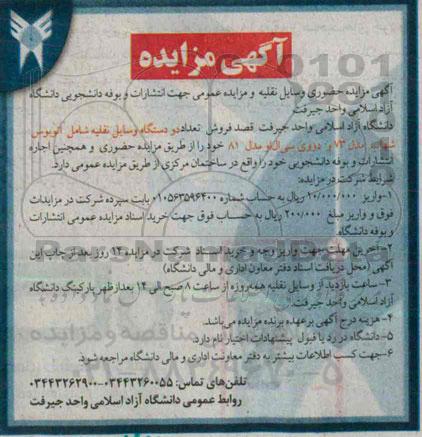 آگهی مزایده
آگهی مزایده حضوری وسایل نقلیه و مزایده عمومی جهت انتشارات و بوفه دانشجویی دانشگاه
آزاد اسلامی واحد جیرفت
دانشگاه آزاد اسلامی واحد جیرفت قصد فروش تعداد دو دستگاه وسایل نقلیه شامل اتوبوس
شهاب مدل ۷۳ و دوو سی‌ال‌او مدل ۸۱ خود را از طریق مزایده حضوری و همچنین اجاره
انتشارات و بوفه دانشجویی خود را واقع در ساختمان مرکزی از طریق مزایده عمومی دارد.
شرایط شرکت در مزایده:
۱-واریز ۲۰/۰۰۰/۰۰۰ ریال به حساب شماره ۰۱۰۵۶۳۵۹۶۴۰۰ بابت سپرده شرکت در مزایدات
فوق و واریز مبلغ ۲۰۰/۰۰۰ ریال به حساب فوق جهت خرید اسناد مزایده عمومی انتشارات
و بوفه دانشگاه.
۲-آخرین مهلت جهت واریز وجه و خرید اسناد شرکت در مزایده ۱۴ روز بعد از چاپ این
آگهی (محل دریافت اسناد دفتر معاون اداری و مالی دانشگاه)
۳- ساعت بازدید از وسایل نقلیه همه‌روزه از ساعت ۸ صبح الی ۱۴ بعدازظهر پارکینگ دانشگاه
آزاد اسلامی واحد جیرفت.
۴- هزینه درج آگهی برعهده برنده مزایده می‌باشد.
۵- دانشگاه در رد یا قبول پیشنهادات اختیار نام دارد.
۶-جهت کسب اطلاعات بیشتر به دفتر معاونت اداری و مالی دانشگاه مراجعه شود.
تلفن‌های تماس: ۰۳۴۴۳۲۶۰۰۵۵-۰۳۴۴۳۲۶۲۹۰۰
روابط عمومی دانشگاه آزاد اسلامی واحد جیرفت